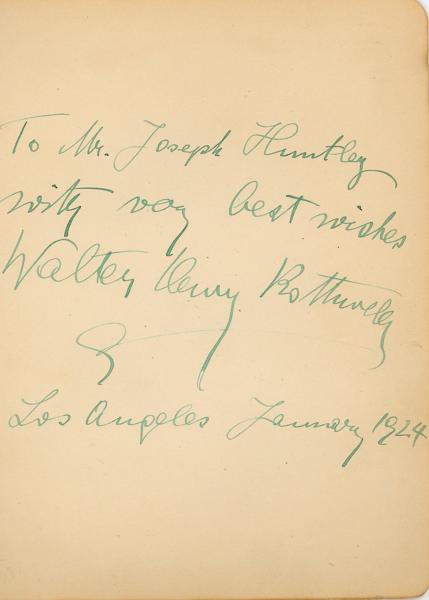 To Mr. Joseph Huntley
with very best wishes
Walter Henry Rothwell
Los Angeles January 1924